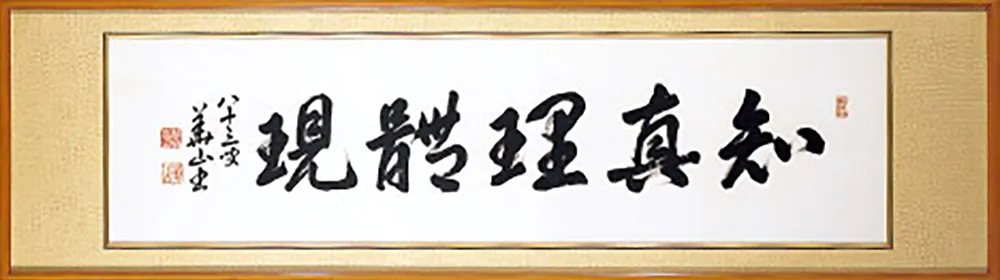 知真理體現
八十三叟
華山書